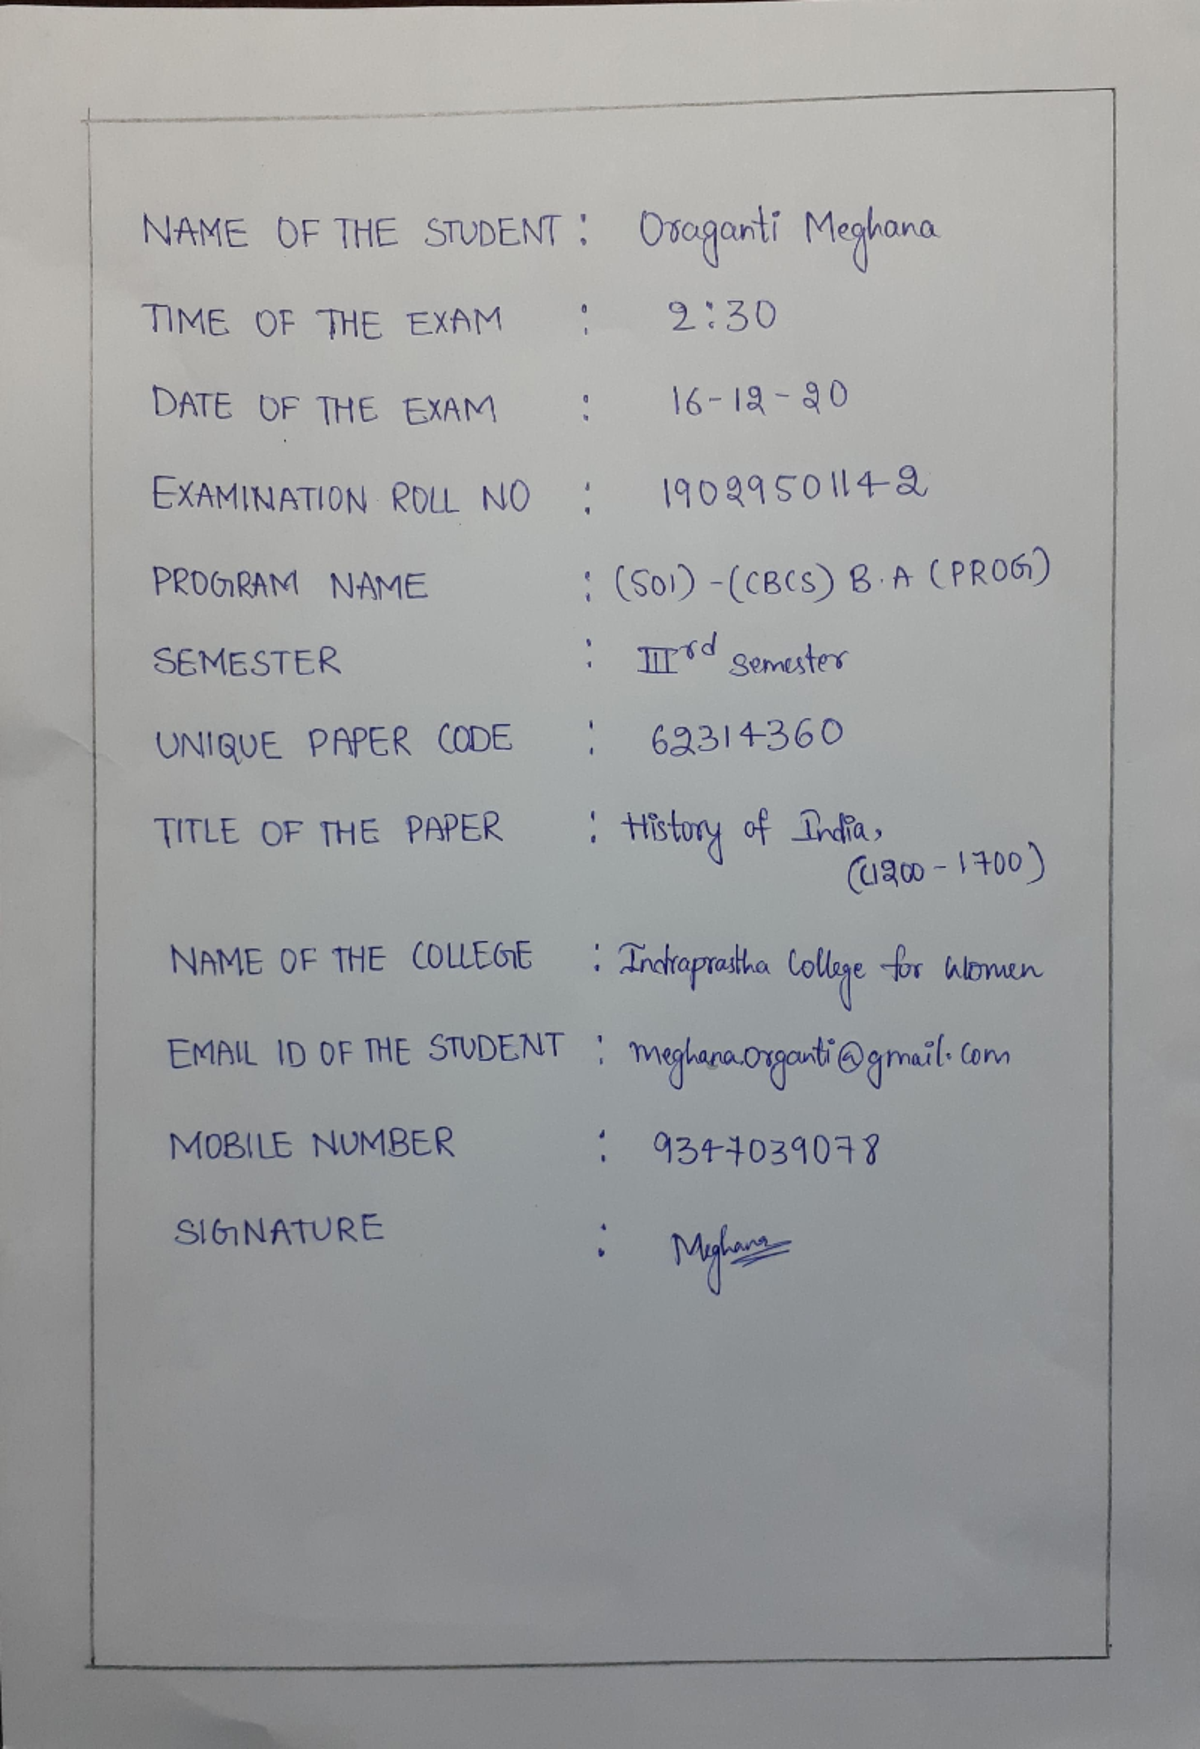 NAME OF THE STUDENT : Oraganti Meghana
TIME OF THE EXAM : 2:30
DATE OF THE EXAM : 16-12-20
EXAMINATION ROLL NO : 19029501142
PROGRAM NAME : (501) - (CBCS) B.A (PROG)
SEMESTER : IIIrd Semester
UNIQUE PAPER CODE : 62314360
TITLE OF THE PAPER : History of India,
(C1200 - 1700)
NAME OF THE COLLEGE : Indraprastha College for Women
EMAIL ID OF THE STUDENT : meghana.organti@gmail.com
MOBILE NUMBER : 9347039078
SIGNATURE : Meghana